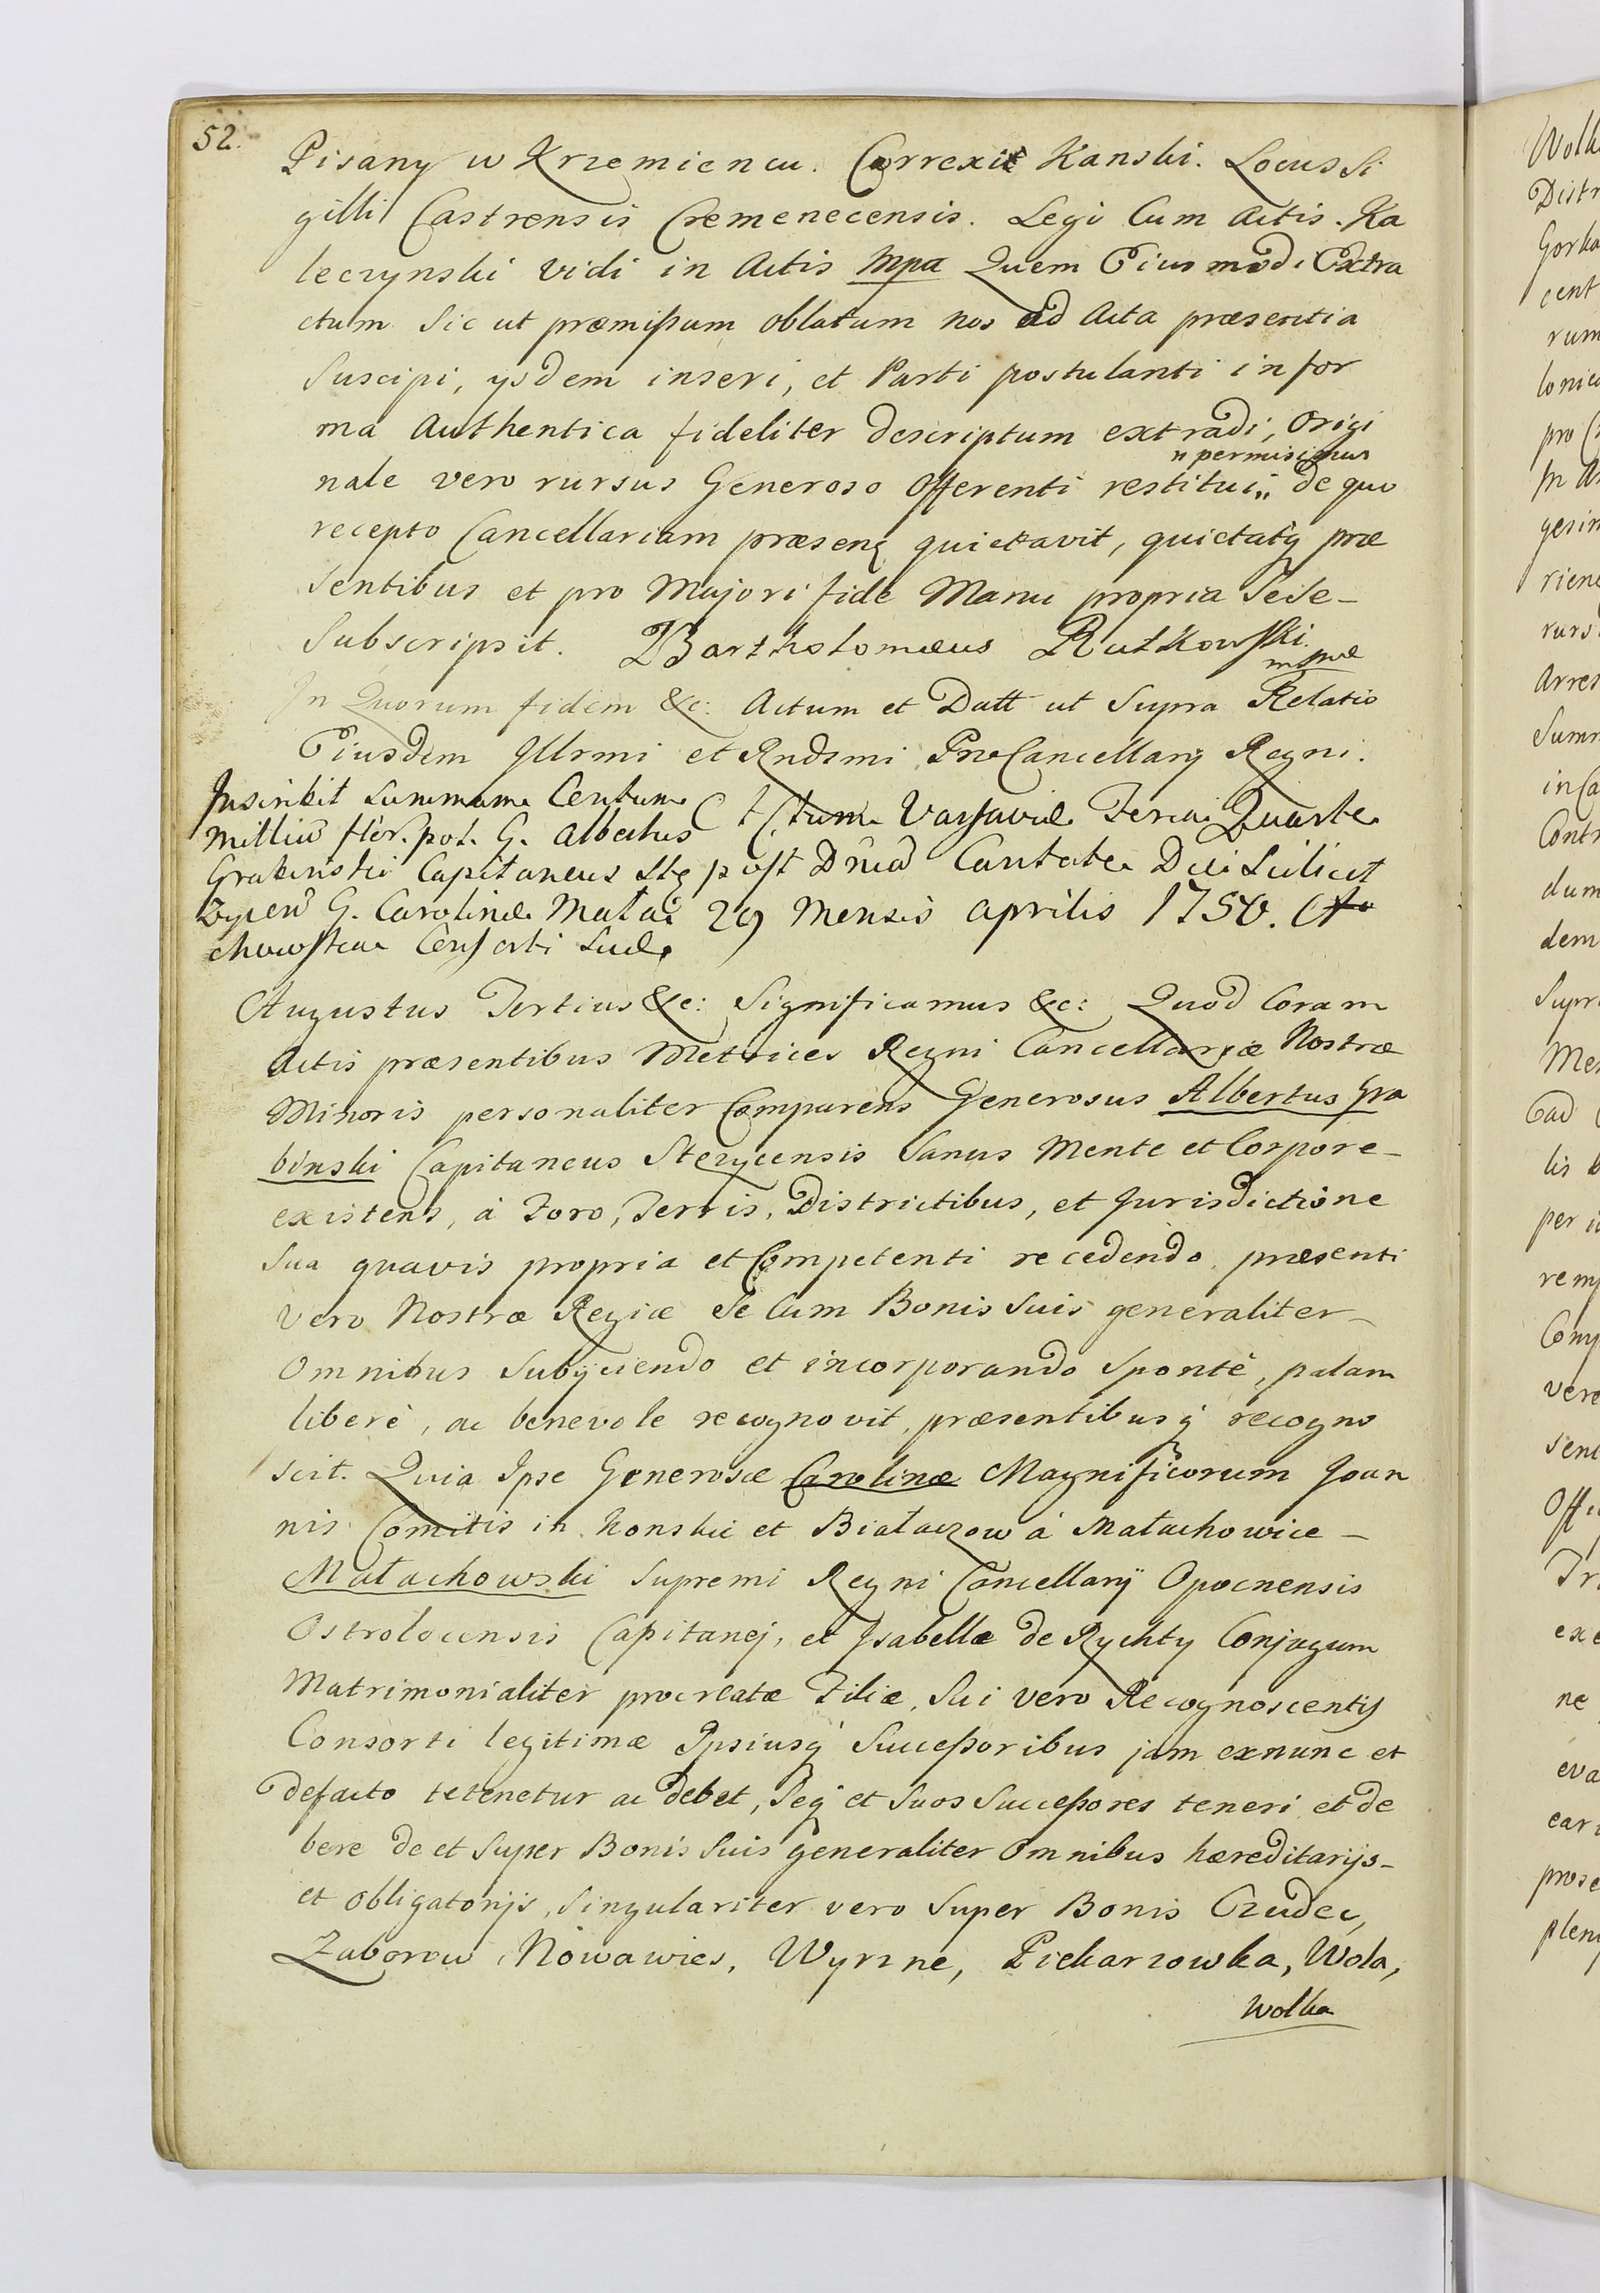 52.
Pisany w Krzemiencu. Correxit Kanski. Locus Si
gilli Castrensis Cremenecensis. Legi Cum Actis. Ka
leczynski Vidi in Actis Mpa Quem Eiusmodi Extra
ctum Sic ut præmißum oblatum nos ad Acta præsentia
Suscipi, ysdem inseri, et Parti postulanti in for
ma Authentica fideliter descriptum extradi, Origi
" permisimus
nale vero rursus Generoso Offerenti restitui " de quo
recepto Cancellariam præsenq quietavit, quietatq præ
sentibus et pro Majori fide Manu propria Sese_
Subscripsit. Bartholomæus Rutkowski
mpæ
In Quorum fidem &c: Actum et Datt ut Supra Relatio
Eiusdem Jllrmi et Rndsmi ProCancellarij Regni.
Inscribit Summam Centum
Millium flor. pol. G. Albertus
Grabinski Capitaneus Ste
zycen G. Carolinæ Mała
chowska Consorti Suæ
Actum Varsaviæ Feria Quarta
post Dnicā Cantate Die Scilicet
29 Mensis Aprilis 1750. Ao
Augustus Tertius &c: Significamus &c: Quod Coram
Actis præsentibus Metrices Regni Cancellariæ Nostræ
Minoris personaliter Comparens Generosus Albertus Gra
binski Capitaneus Stezycensis Sanus Mente et Corpore_
existens, à Foro, Terris, Districtibus, et Jurisdictione
Sua quavis propria et Competenti recedendo, præsenti
Vero Nostræ Regiæ Se Cum Bonis Suis generaliter_
Omnibus Subijciendo et incorporando Spontè, palam
liberè, ac benevole recognovit, præsentibusq recogno
scit. Quia Ipse Generosæ Carolinæ Magnificorum Joan
nis Comitis in Konskie et Białaczow à Małachowice_
Małachowski Supremi Regni Cancellarij Opocnensis
Ostrolocensis Capitanej, et Jsabellæ de Rychty Conjugum
Matrimonialiter procreatæ Filiæ, Sui vero Recognoscentis
Consorti legitimæ Ipsiusq Succeßoribus jam exnunc et
defacto tetenetur ac debet, Seq et Suos Succeßores teneri et de
bere de et Super Bonis Suis generaliter Omnibus hæreditarijs_
et obligatorijs, Singulariter vero Super Bonis Czudec,
Zaborow, Nowawies, Wyrzne, Piekarzowka, Wola,
Wolka